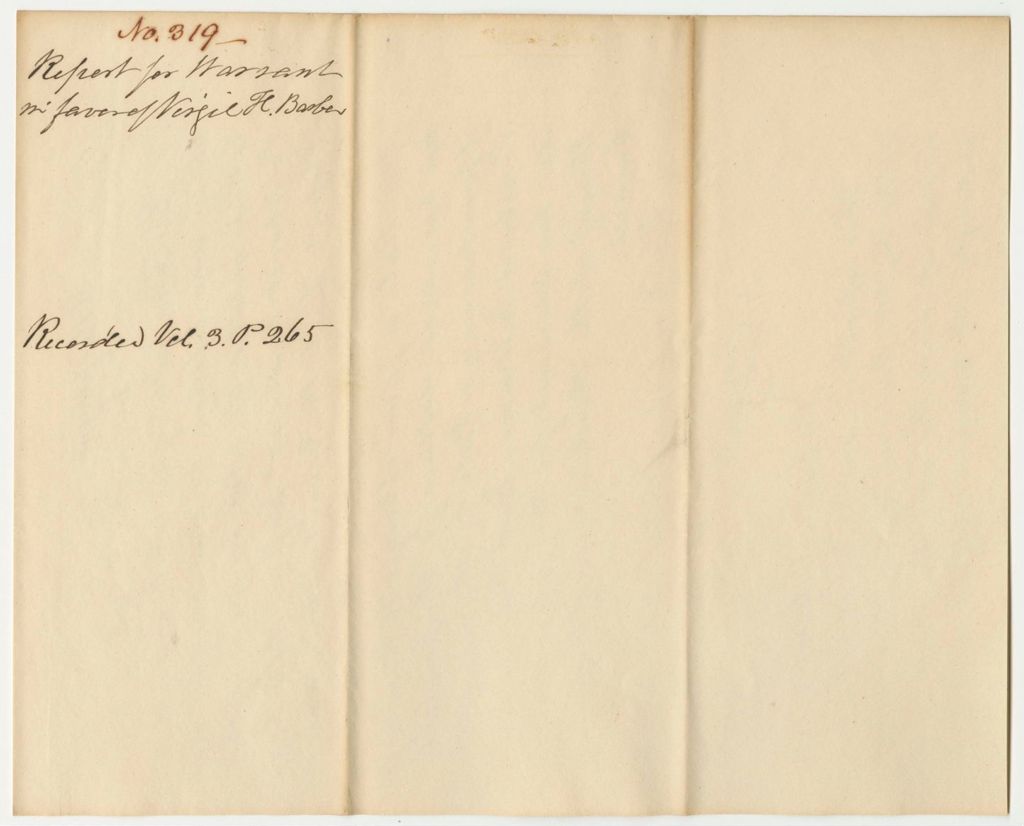 No. 319
Report for Warrant
in favor of Virgil H. Barber
Recorded Vol. 3. P. 265